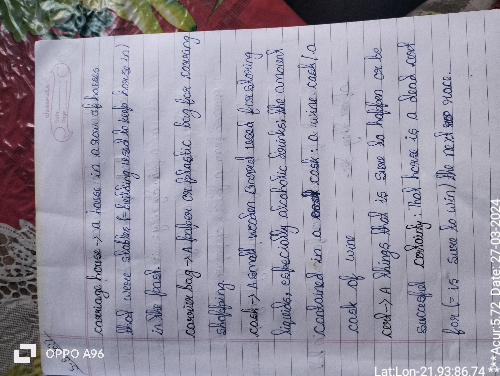 carriage house → a house in a row of houses
that were stables (= building used to keep horse in)
in the past
carrier bag → A paper or plastic bag for carrying
shopping
cask → A small wooden barrel used for storing
liquids, especially alcoholic drinks; the amount
contained in a cask: a wine cask / a
cask of wine
cert → A things that is sure to happen or be
successful certainty: that horse is a dead cert
for (= is sure to win) the next race.
OPPO A96
Lat:Lon-21.93:86.74
***Acur:5.72 Date: 27-03-2024